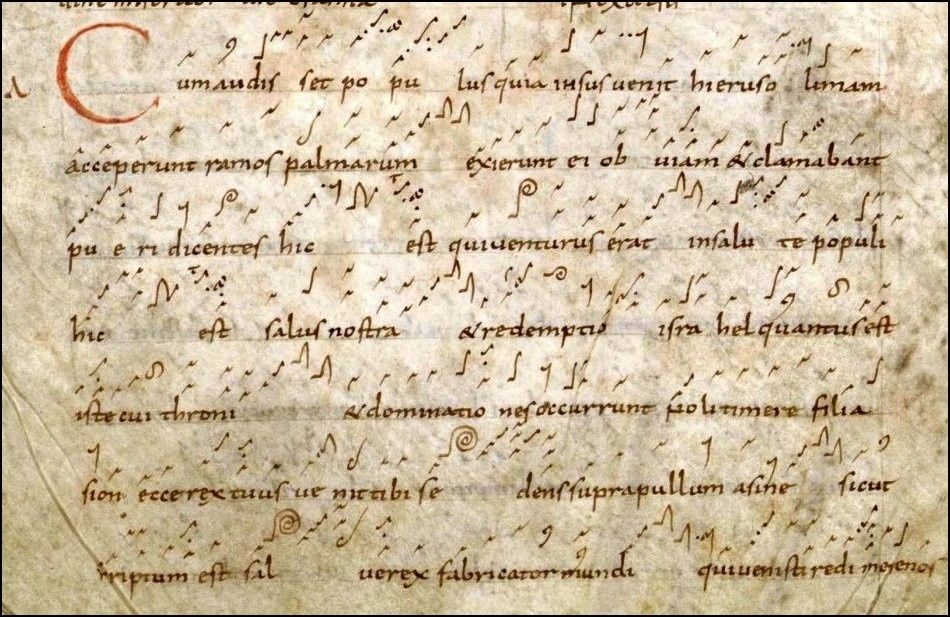 Cum audis set po pu lus quia iħsus venit hieruso limam
acceperunt ramos palmarum exierunt ei ob viam & clamabant
pu e ri dicentes hic est qui venturus erat in salu te populi
hic est salus nostra & redemptio isra hel quantus est
iste cui throni & dominatio nes occurrunt noli timere filia
sion ecce rex tuus ve nit tibi se dens supra pullum asine sicut
scriptum est sal ve rex fabricator mundi qui venisti redi mere nos